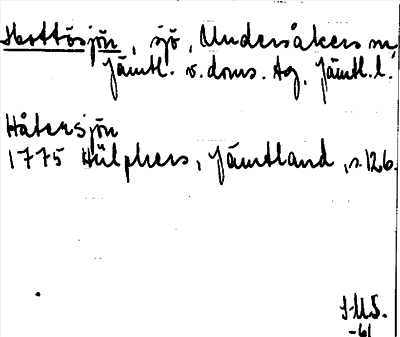 Hottösjön, sjö, Undersåkers sn,
Jämtl. v. doms. tg. Jämtl. l.
Håtersjön
1775 Hülphers, Jämtland, s. 126.
-61